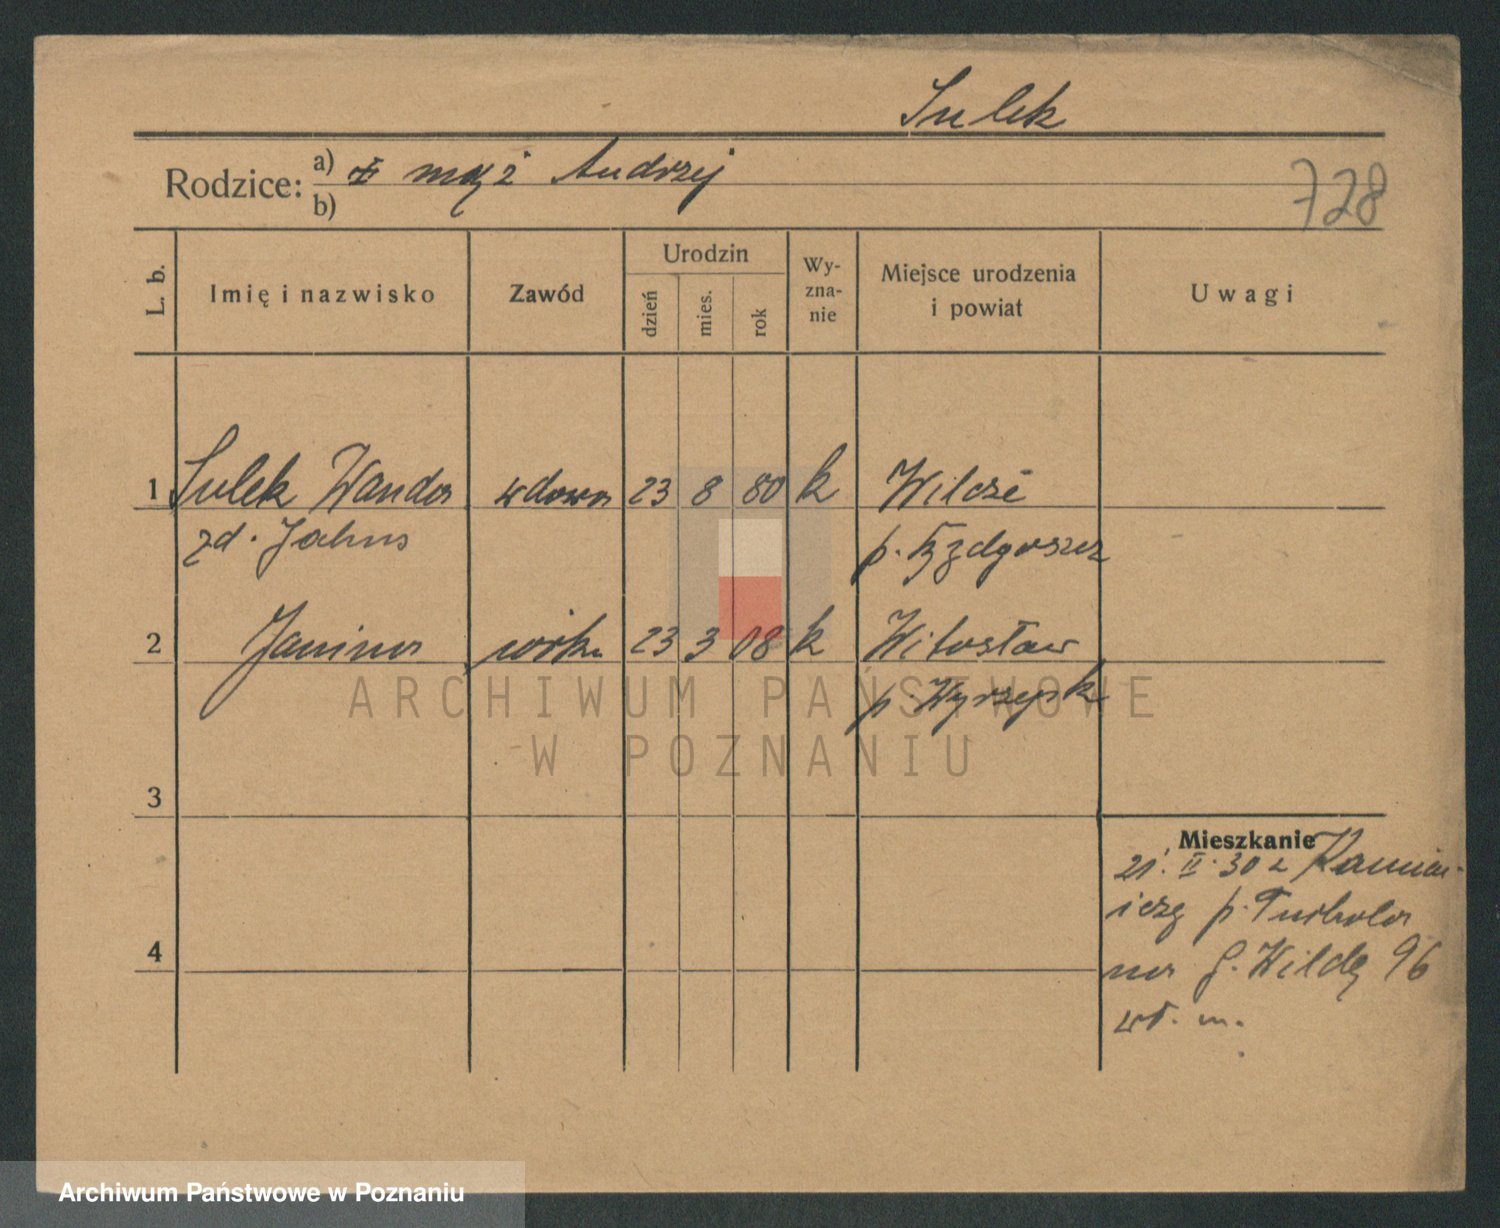 Sulek
Rodzice: a) ☩ mąż Andrzej
b)
728
L. b.
Imię i nazwisko
Zawód
Urodzin
dzień
mies.
rok
Wy-
zna-
nie
Miejsce urodzenia
i powiat
Uwagi
1 Sulek Wanda wdowa 23 8 80 k Wilcze
zd. Jahns p. Bydgoszcz
2 Janina córka 23 3 08 k Witosław
p. Wyrzysk
ARCHIWUM PAŃSTWOWE
W POZNANIU
3
Mieszkanie
21. II. 30 z Kamie-
nicy p. Tuchola
4
na G. Wildę 96
wł. m.
Archiwum Państwowe w Poznaniu